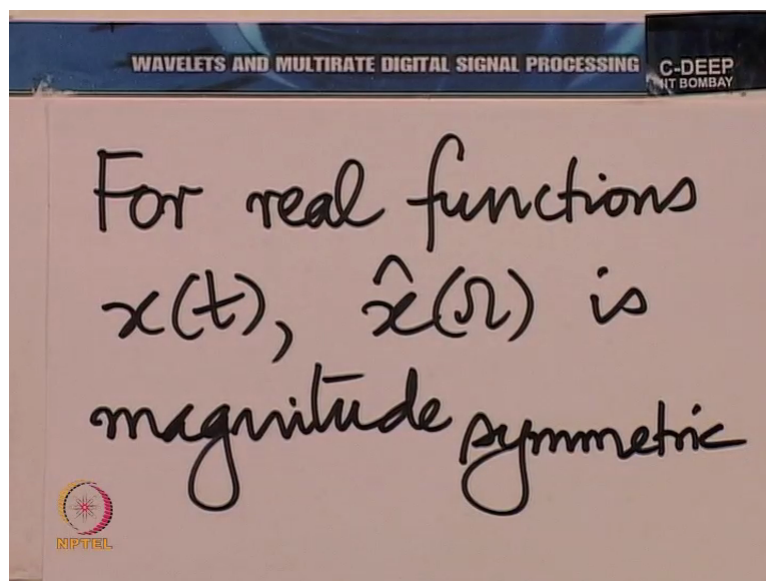 WAVELETS AND MULTIRATE DIGITAL SIGNAL PROCESSING
C-DEEP
IIT BOMBAY
For real functions
x(t), x̂(Ω) is
magnitude symmetric
NPTEL